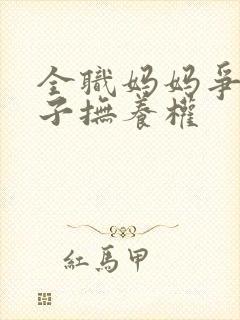 全職媽媽爭
子撫養權
紅馬甲